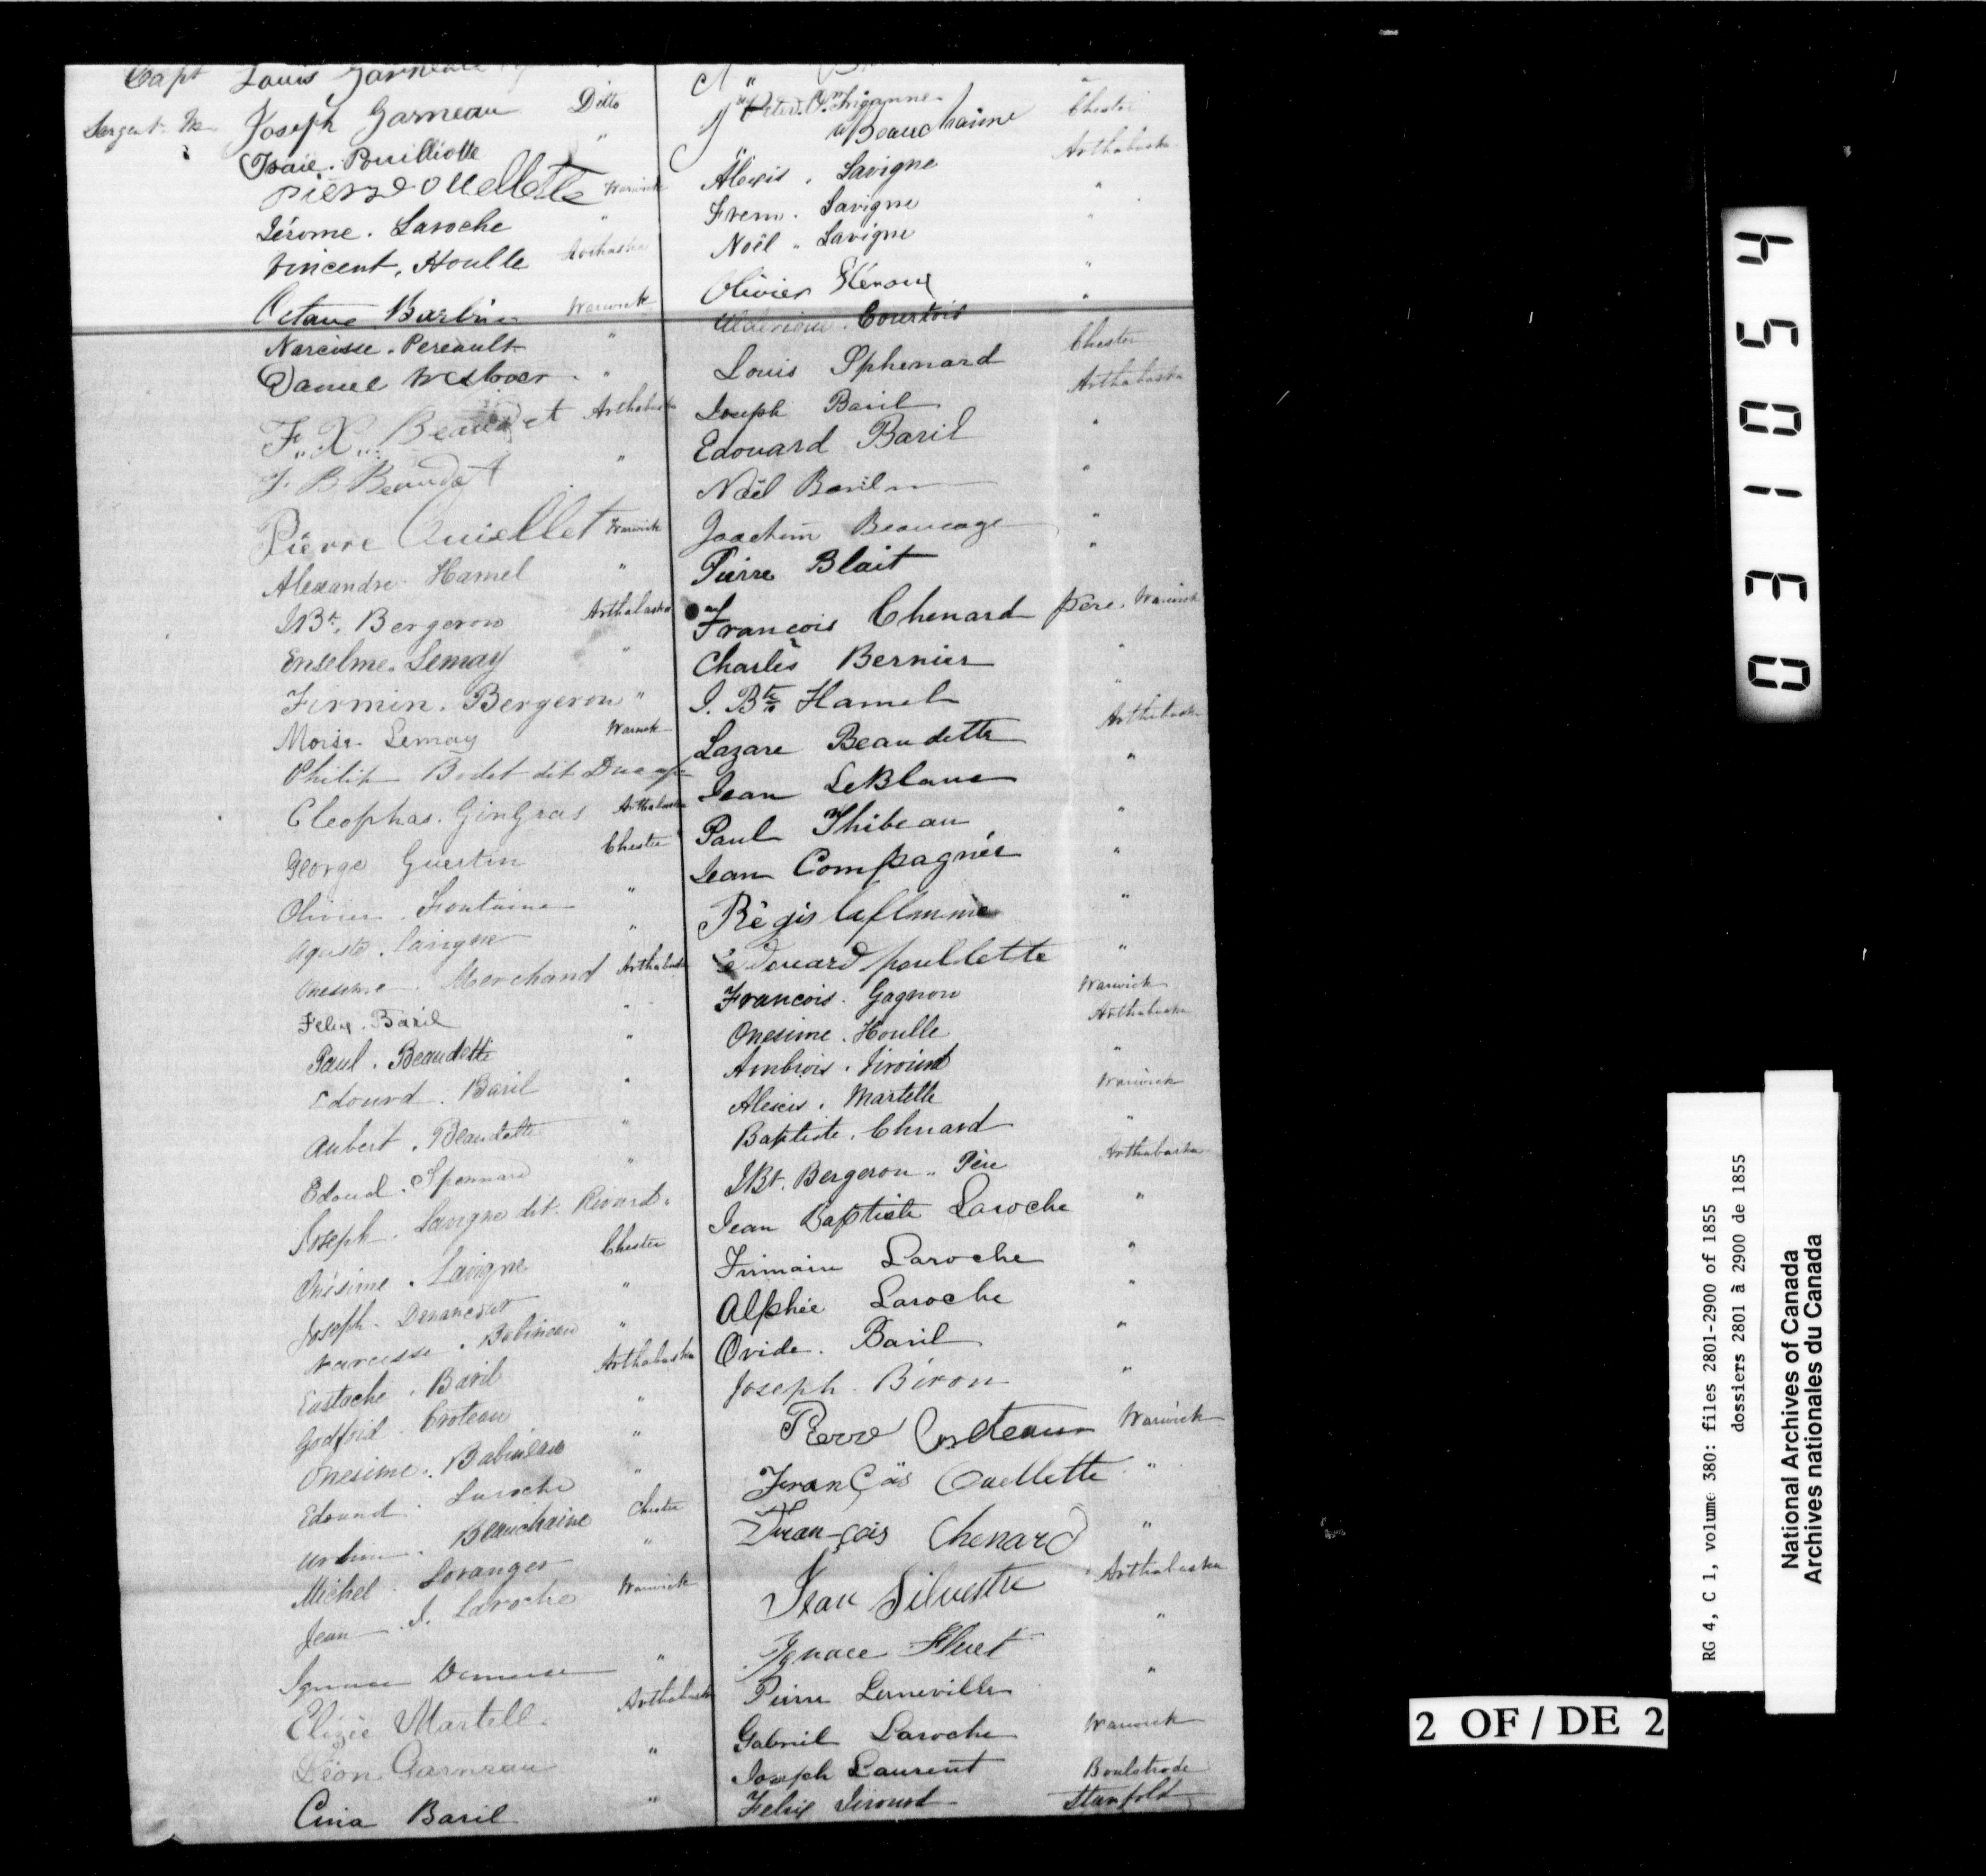 Capt Louis Garneau
Sargent Joseph Garneau Ditto
Isaïe. Pouilliotte "
Pierre Ouellette Warwick
Jérome. Laroche "
Vincent. Houlle Arthabaska
Octave Warwick
Narcisse. Pereault "
Daniel "
F. X. Beaudet Arthabaska
J. B Beaudet "
Pierre Ouiellet Warwick
Alexandre Hamel "
JBt. Bergeron Arthabaska
Enselme. Lemay "
Firmin. Bergeron "
Moïse Lemay Warwick
Philip Bodet dit
Cleophas. GinGras Arthabaska
George Guertin Chester
Olivier. Fontaine "
Aguste. Lavigne "
Merchand Arthabaska
Felix. Baril "
Paul. Beaudette "
Edouard. Baril "
Aubert. Beaudette "
Edoud. Spennard "
Joseph. Lavigne dit. Rivard.
Onésime. Lavigne Chester
Joseph. "
Narcisse. Babineau "
Eustache. Baril Arthabaska
Godfroid. Croteau "
Onesime. Babineau "
Edouard. Laroche "
Urbain. Beauchaine Chester
Michel. Loranger "
Jean. J. Laroche Warwick
Ignace "
Elizée Martell. Arthabaska
Léon Garneau "
Baril "
Beauchaine Chester
Alexis. Lavigne Arthabaska
Frem. Lavigne "
Noël. Lavigne "
Olivier Héroux "
Courtois "
Louis Sphenard Chester
Joseph Baril Arthabaska
Edouard Baril "
Noël Baril "
Joachim Beaucage "
Pierre Blait "
François Chenard père. Warwick
Charles Bernier "
J. Bte Hamel "
Lazare Beaudette Arthabaska
Jean LeBlanc "
Paul Thibeau "
Jean Compagnér "
Régis laflamme "
Edouard poullette "
Francois. Gagnon Warwick
Onesime. Houlle Arthabaska
Ambrois. "
Alexis. Martelle Warwick
Baptiste. Chnard "
JBt. Bergeron.. Père Arthabaska
Jean Baptiste Laroche "
Firmain Laroche "
Alphée Laroche "
Ovide. Baril "
Joseph. Béron "
Pierre Warwick
François Ouellette "
François Chenard "
Jean Silvestre Arthabaska
Ignace Fluet "
Pierre Lerneville "
Gabriel Laroche Warwick
Joseph Laurent Boulstrode
Felix Stanfold
031054
RG 4, C 1, volume 380: files 2801-2900 of 1855
dossiers 2801 à 2900 de 1855
National Archives of Canada
Archives nationales du Canada
2 OF / DE 2